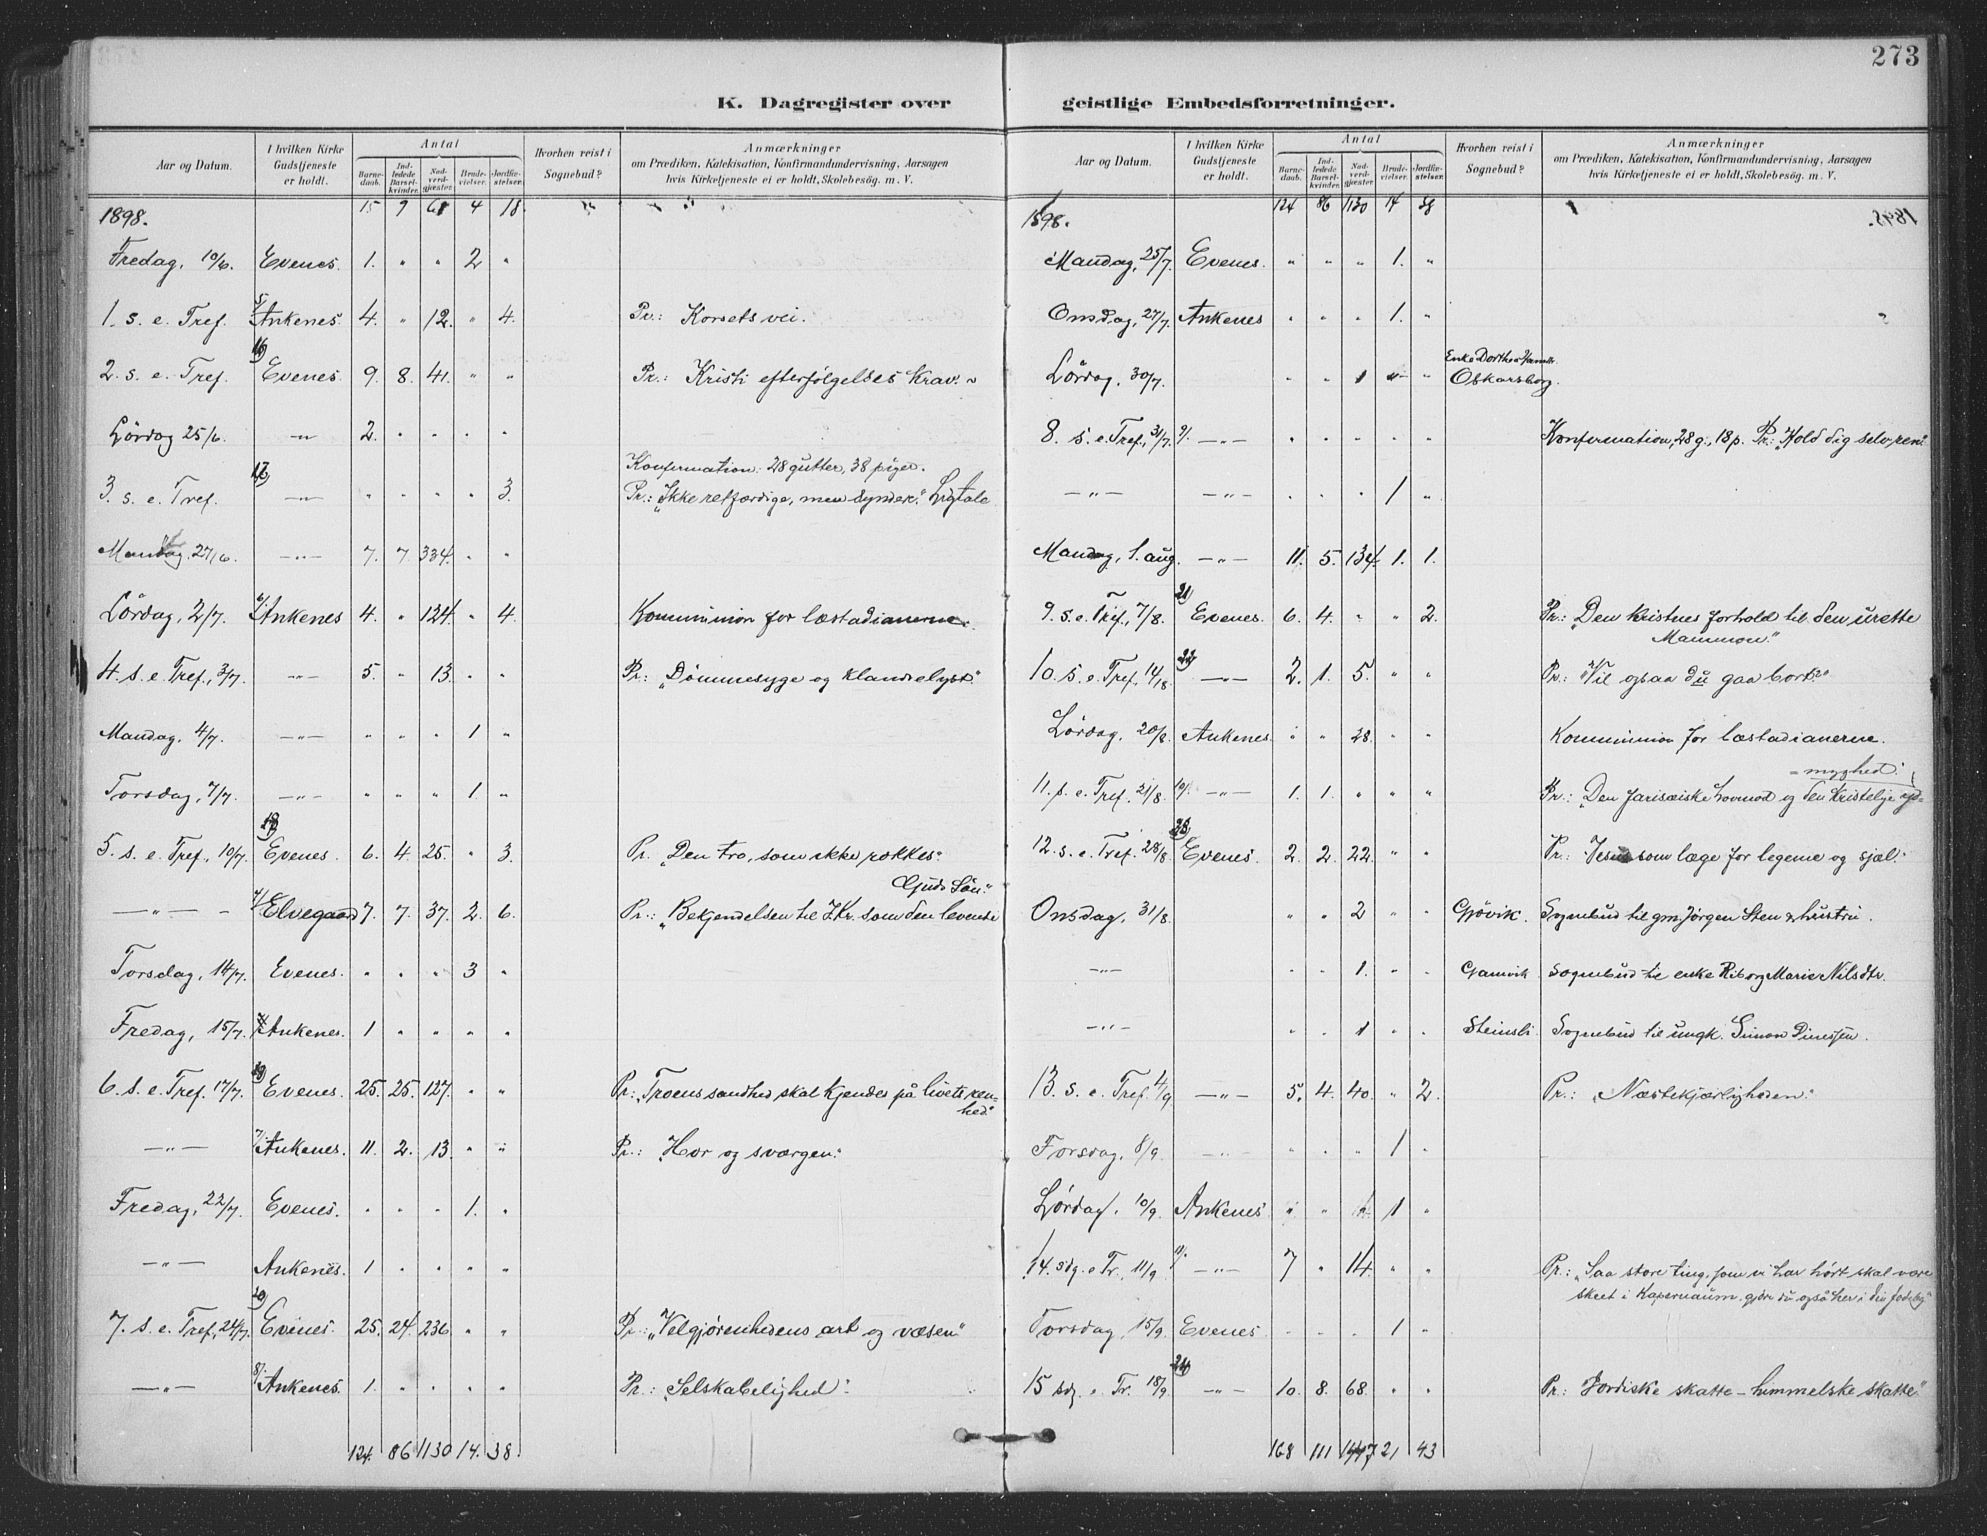 273
K. Dagregister over geistlige Embedsforretninger.
Aar og Datum. | I hvilken Kirke Gudstjeneste er holdt. | Antal | Barnedaab. | Indledede Barselkvinder. | Nadverdgjæster. | Brudevielser. | Jordfæstelser. | Hvorhen reist i Sognebud? | Anmærkninger om Prædiken, Katekisation, Konfirmandundervisning, Aarsagen hvis Kirketjeneste ei er holdt, Skolebesøg. m. V.
1898. 15 9 4 18.
Fredag, 10/6. Evenes. 1. " " 2 "
1. s. e. Tref. 5/ Ankenes. 4. " 12. " 4. Pr.: Korsets vei.
2. s. e. Tref. 16) Evenes. 9. 8. 41. " " Pr.: Kristi efterfølgelses krav.
Lördag 25/6. —"— 2. " " " "
Konfermation: 28 gutter, 38 piger.
3. s. e. Tref. 17) —"— " " " " 3. Pr.: "Ikke retfærdige, men syndere." Ligtale
Mandag. 27/6. —"— 7. 7. 334. " "
Lördag, 2/7. 6/ Ankenes 4. " 134. " 4. Kommunion for læstadianerne.
4. s. e. Tref., 3/7. —"— 5. " 13. " " Pr.: "Dömmesyge og klandrelyst."
Mandag, 4/7. —"— " " " 1 "
Torsdag, 7/7. —"— " " " 1. "
5. s. e. Tref., 10/7. Evenes. 6. 4. 25. " 3. Pr. "Den tro, som ikke rokkes."
Guds Sön."
—"— 7/ Elvegaard 7. 7. 37. 2. 6. Pr.: "Bekjendelsen til J.Kr. som den levende
Torsdag, 14/7. Evenes. " " " 3 "
Fredag, 15/7. Ankenes. 1 " " " "
6. s. e. Tref. 17/7. Evenes. 25. 25. 127. " " Pr.: "Troens sandhed skal kjendes på livets ren-
hed."
—"— 7/ Ankenes. 11. 2. 13. " " Pr.: "Hor og sværgen."
Fredag, 22/7. Evenes. " " " 1. "
—"— Ankenes. 1 " " " "
7. s. e. Tref., 24/7. 20) Evenes. 25. 24. 236 " " Pr.: "Velgjørenhedens art og væsen"
—"— 8/ Ankenes. 1. " " " " Pr.: "Selskabelighed."
124. 86 1130 14. 38.
Aar og Datum. | I hvilken Kirke Gudstjeneste er holdt. | Antal | Barnedaab. | Indledede Barselkvinder. | Nadverdgjæster. | Brudevielser. | Jordfæstelser. | Hvorhen reist i Sognebud? | Anmærkninger om Prædiken, Katekisation, Konfirmandundervisning, Aarsagen hvis Kirketjeneste ei er holdt, Skolebesøg. m. V.
1898. 124 86 1130 14 38
Mandag, 25/7. Evenes. " " " 1. "
Onsdag, 27/7. Ankenes " " " 1. "
Enke Dorthea
Lördag, 30/7. " " 1 " " Oskarsborg.
8. s. e. Tref., 31/7. 9/. —"— " " " " " Konfermation, 28 g., 18 p. Pr.: "Hold dig selv ren."
—"— —"— " " " 1 "
Mandag, 1. aug. —"— 11. 5. 134. 1. 1.
9. s. e. Tref., 7/8. 21) Evenes. 6. 4. " " 2. Pr.: "Den kristnes forhold til den urette
Mammon."
10. s. e. Tref., 14/8. 22) —"— 2. 1. 5. " " Pr.: "Vil ogsaa du gaa bort?"
Lördag, 20/8. Ankenes. " " 28. " " Kommunion for læstadianerne.
= myghed."
11. s. e. Tref. 21/8. 10/. —"— 1. 1. " " " Pr.: "Den farisæiske hovmod og den kristelige yd=
12. s. e. Tref. 28/8. 23) Evenes. 2. 2. 22. " " Pr.: "Jesus som læge for legeme og sjæl."
Onsdag, 31/8. " " 2 " " Gjövik. Sognebud til gm. Jørgen Sten & hustru.
—"— " " 1. " " Gamvik Sognebud til enke Riborg Marie Nilsdtr.
—"— " " 1 " " Steinsli. Sognebud til ungk. Simon Dinessen.
13. s. e. Tref. 4/9. —"— 5. 4. 40. " 2. Pr.: "Næstekjærligheden."
Torsdag, 8/9. —"— " " " 1 "
Lördag, 10/9. Ankenes. " " 1 "
14. sdg. e Tr., 11/9. 11/. —"— 7 " 14. " " Pr.: "Saa store ting, som vi har hørt skal være
skeet i Kapernaum, gjöre du også her i din fødeby"
Torsdag, 15/9. Evenes. " " " 1 "
15 sdg. e Tr. 18/9. 24) —"— 10. 8. 68. " " Pr.: "Jordiske skatte – himmelske skatte."
168 111 1447 21 43